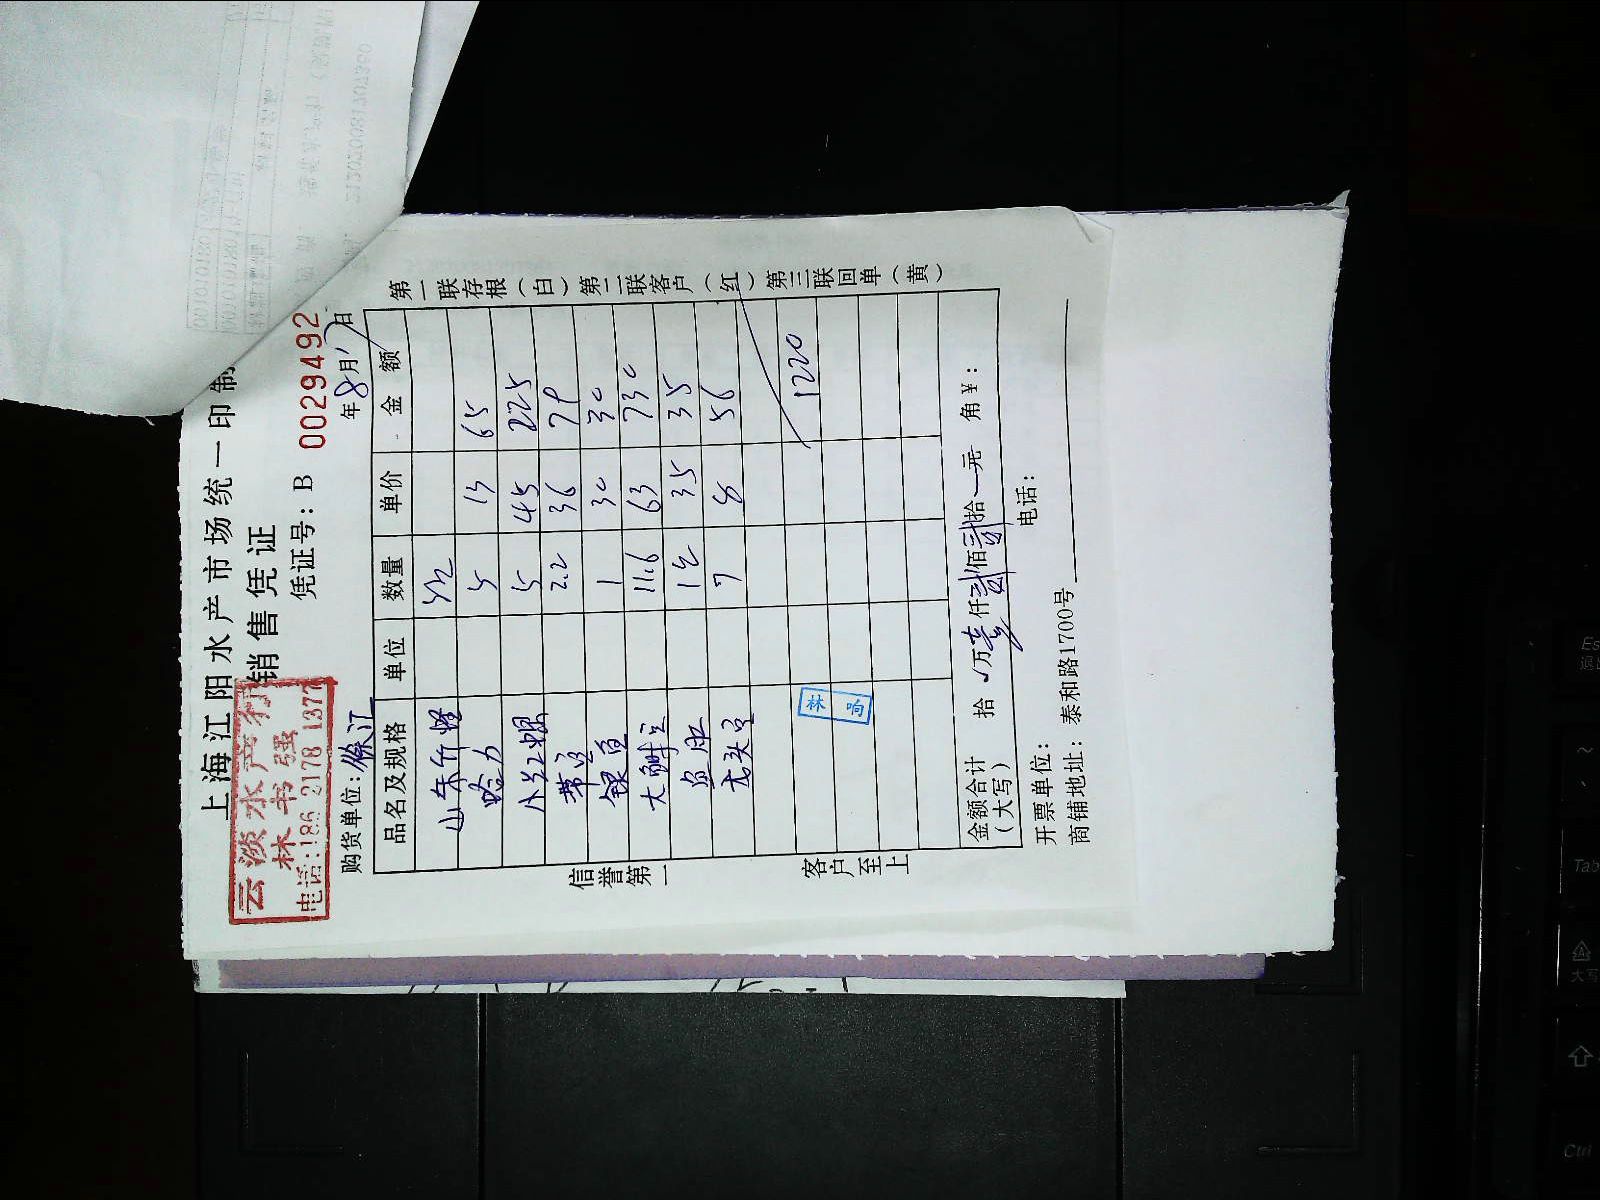 上海江阳水产市场统一印制
销售凭证
云淡水产行
林书强
电话:186 2178 1377
凭证号: B 0029492
购货单位: 徐汇
年8月1日
品名及规格 单位 数量 单价 金额
山东竹蛏
哈力 5 13 65
小花螺 5 45 225
带鱼 2.2 36 79
银鱼 1 30 30
大鲜贝 11.6 63 730
鱼皮 1 35 35
7 8 56
1220
林 响
金额合计(大写) 拾 万壹仟贰佰贰拾 元 角¥:
开票单位: 电话:
商铺地址: 泰和路1700号
第一联存根(白)第二联客户(红)第三联回单(黄)
信誉第一
客户至上